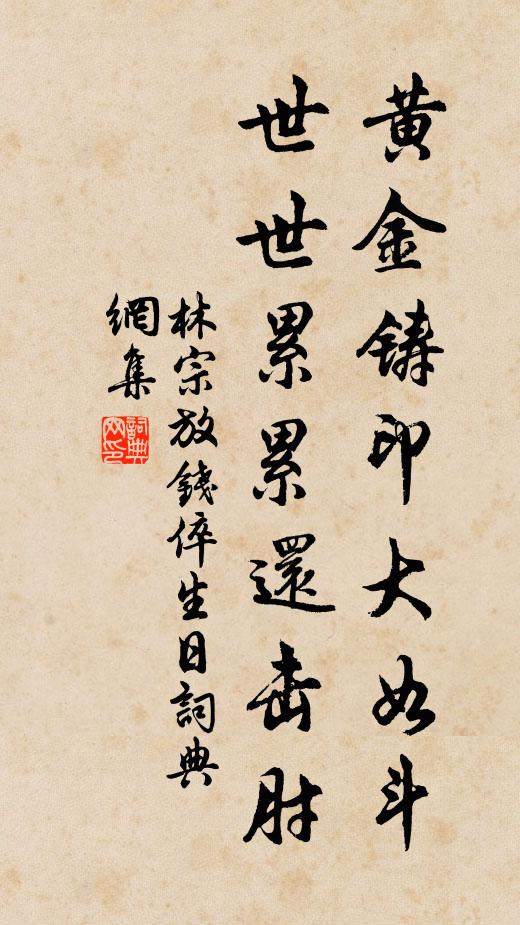 黄金鋳印大如斗
世世累累還击肘
林宗放錢倅生日詞典
網集
詞典網印